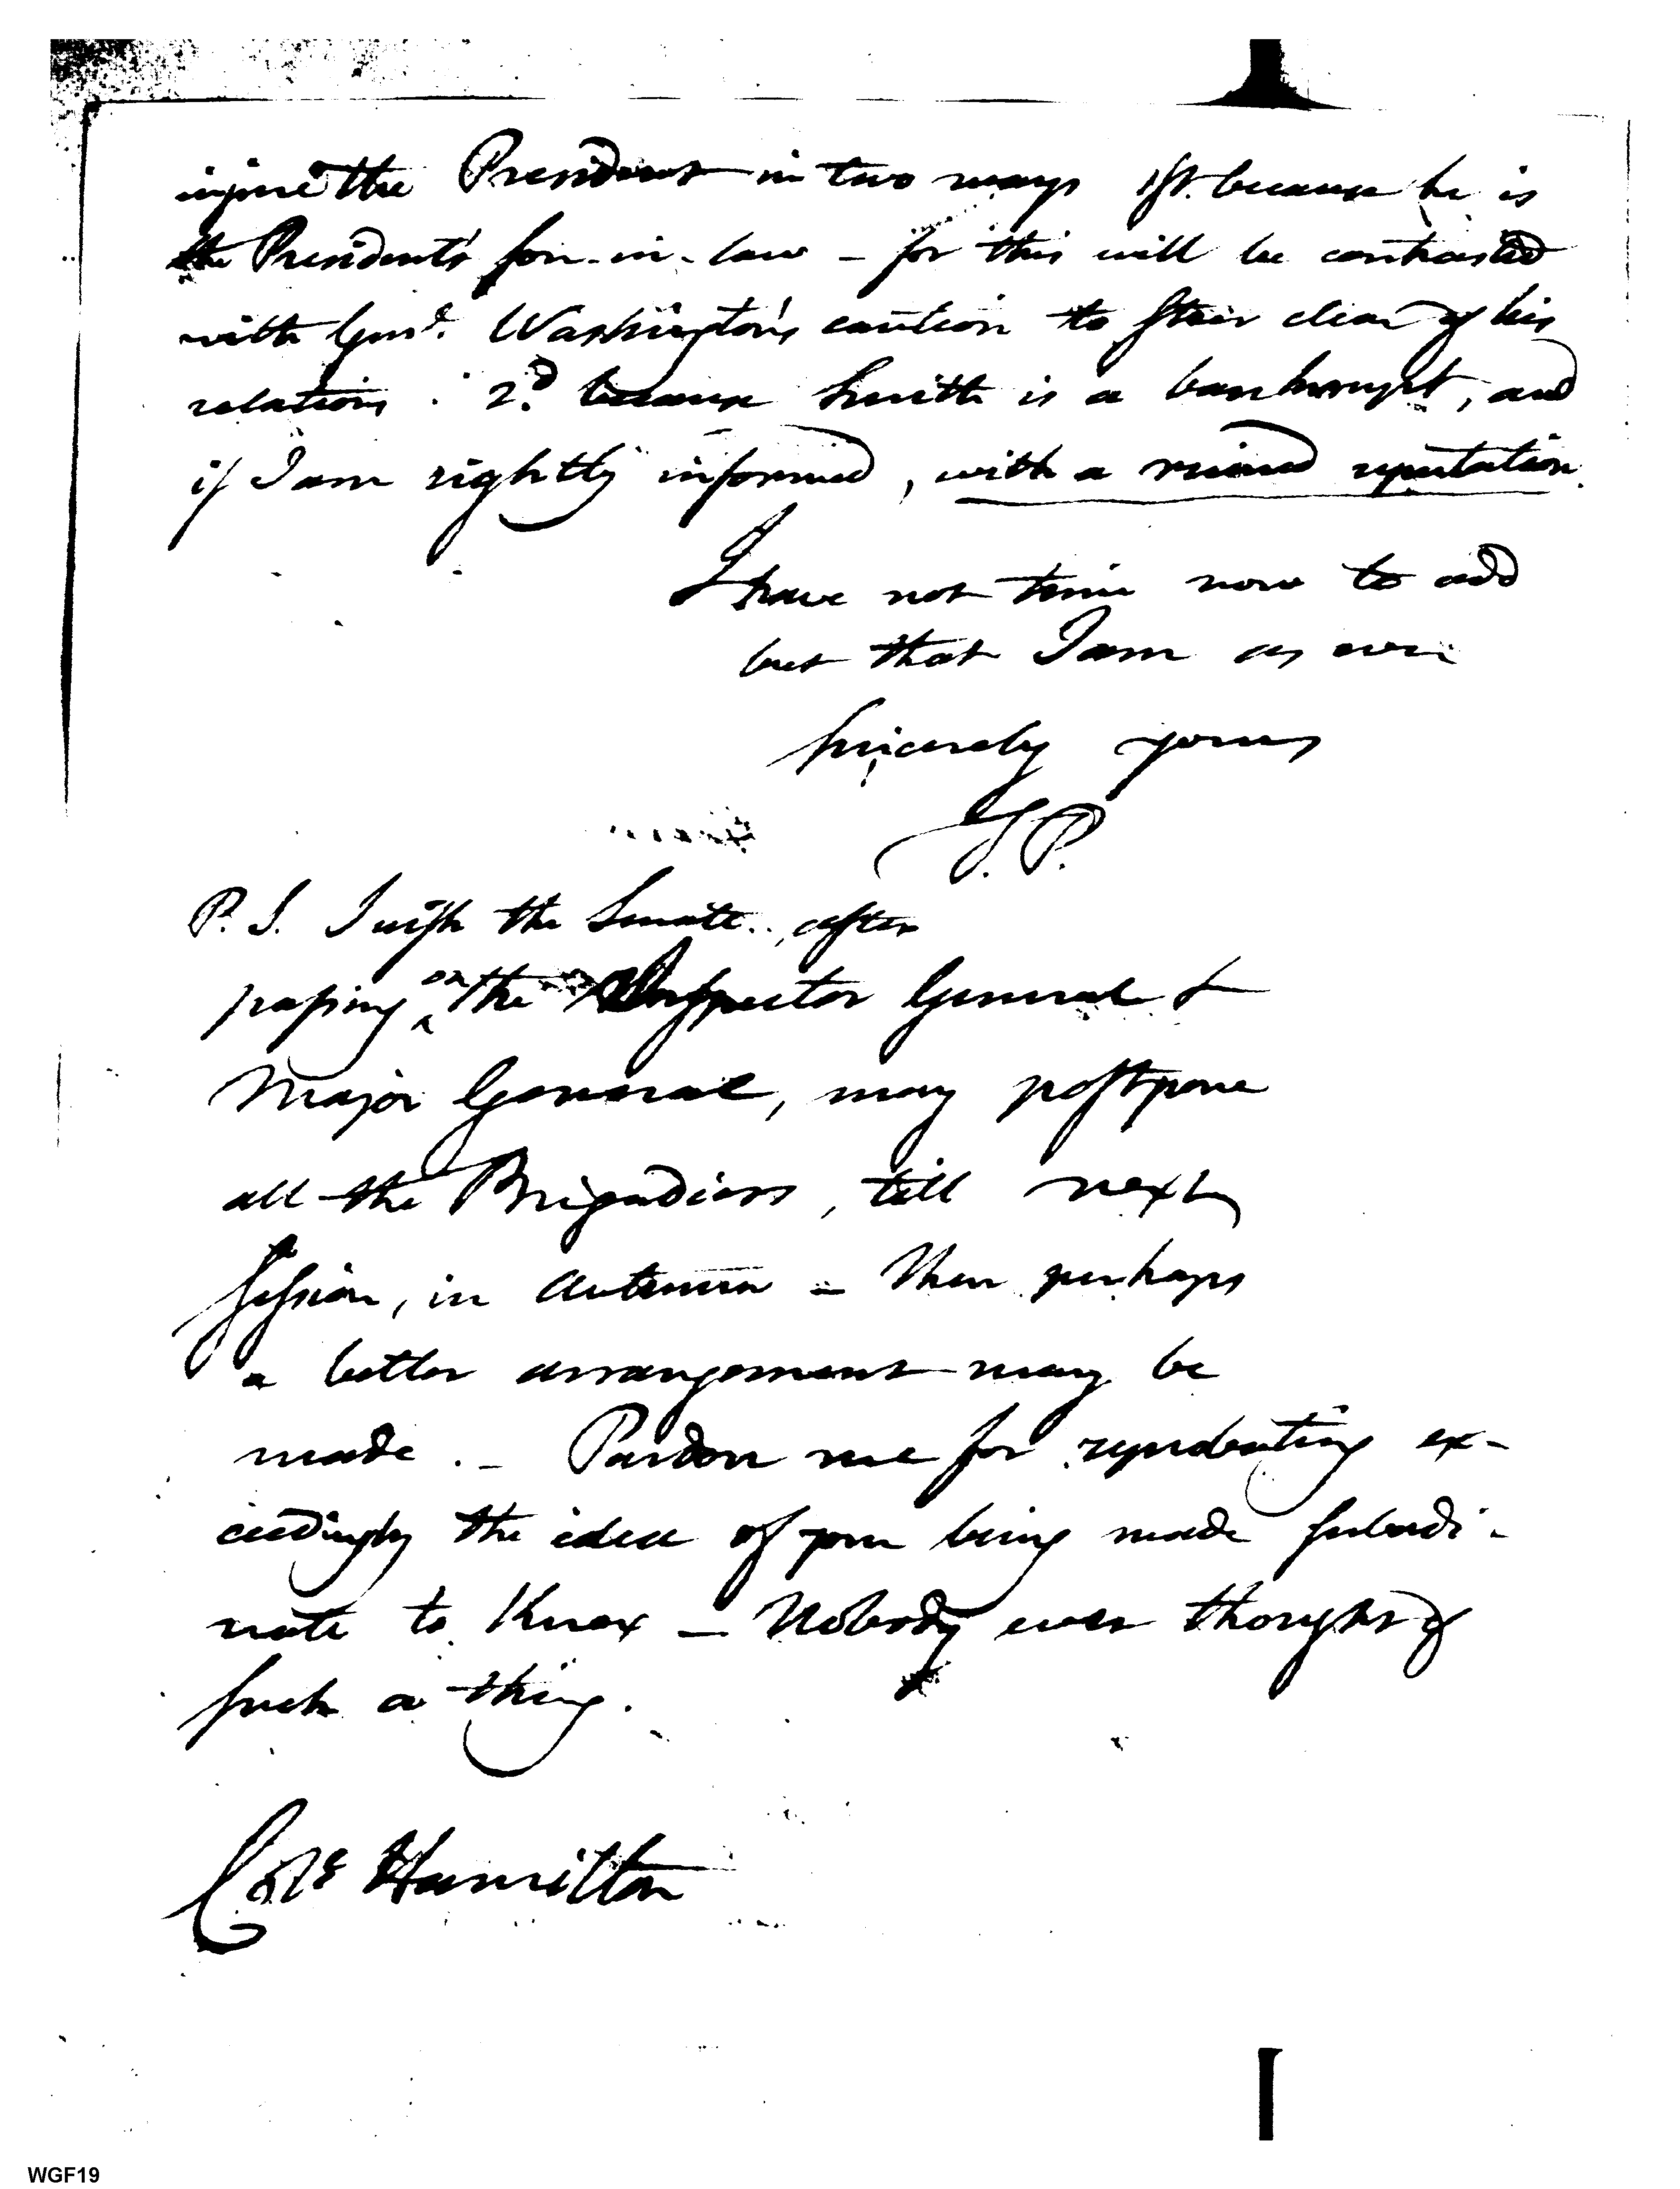 injure the President in two ways 1st. because he is
the President's son-in-law – for this will be contrasted
with Genl. Washington's caution to steer clear of his
relations. 2d. because Smith is a bankrupt, and
if I am rightly informed, with a ruined reputation.
I have not time now to add
but that I am as ever
sincerely yours
T. P.
P. S. I wish the Senate, after
passing on the Inspector General &
Major General, may postpone
all the Brigadiers, till next
session, in autumn – Then perhaps
a better arrangement may be
made. – Pardon me for repeating ex-
ceedingly the idea of your being made subordi-
nate to Knox – Nobody ever thought of
such a thing.
Colo Hamilton
WGF19